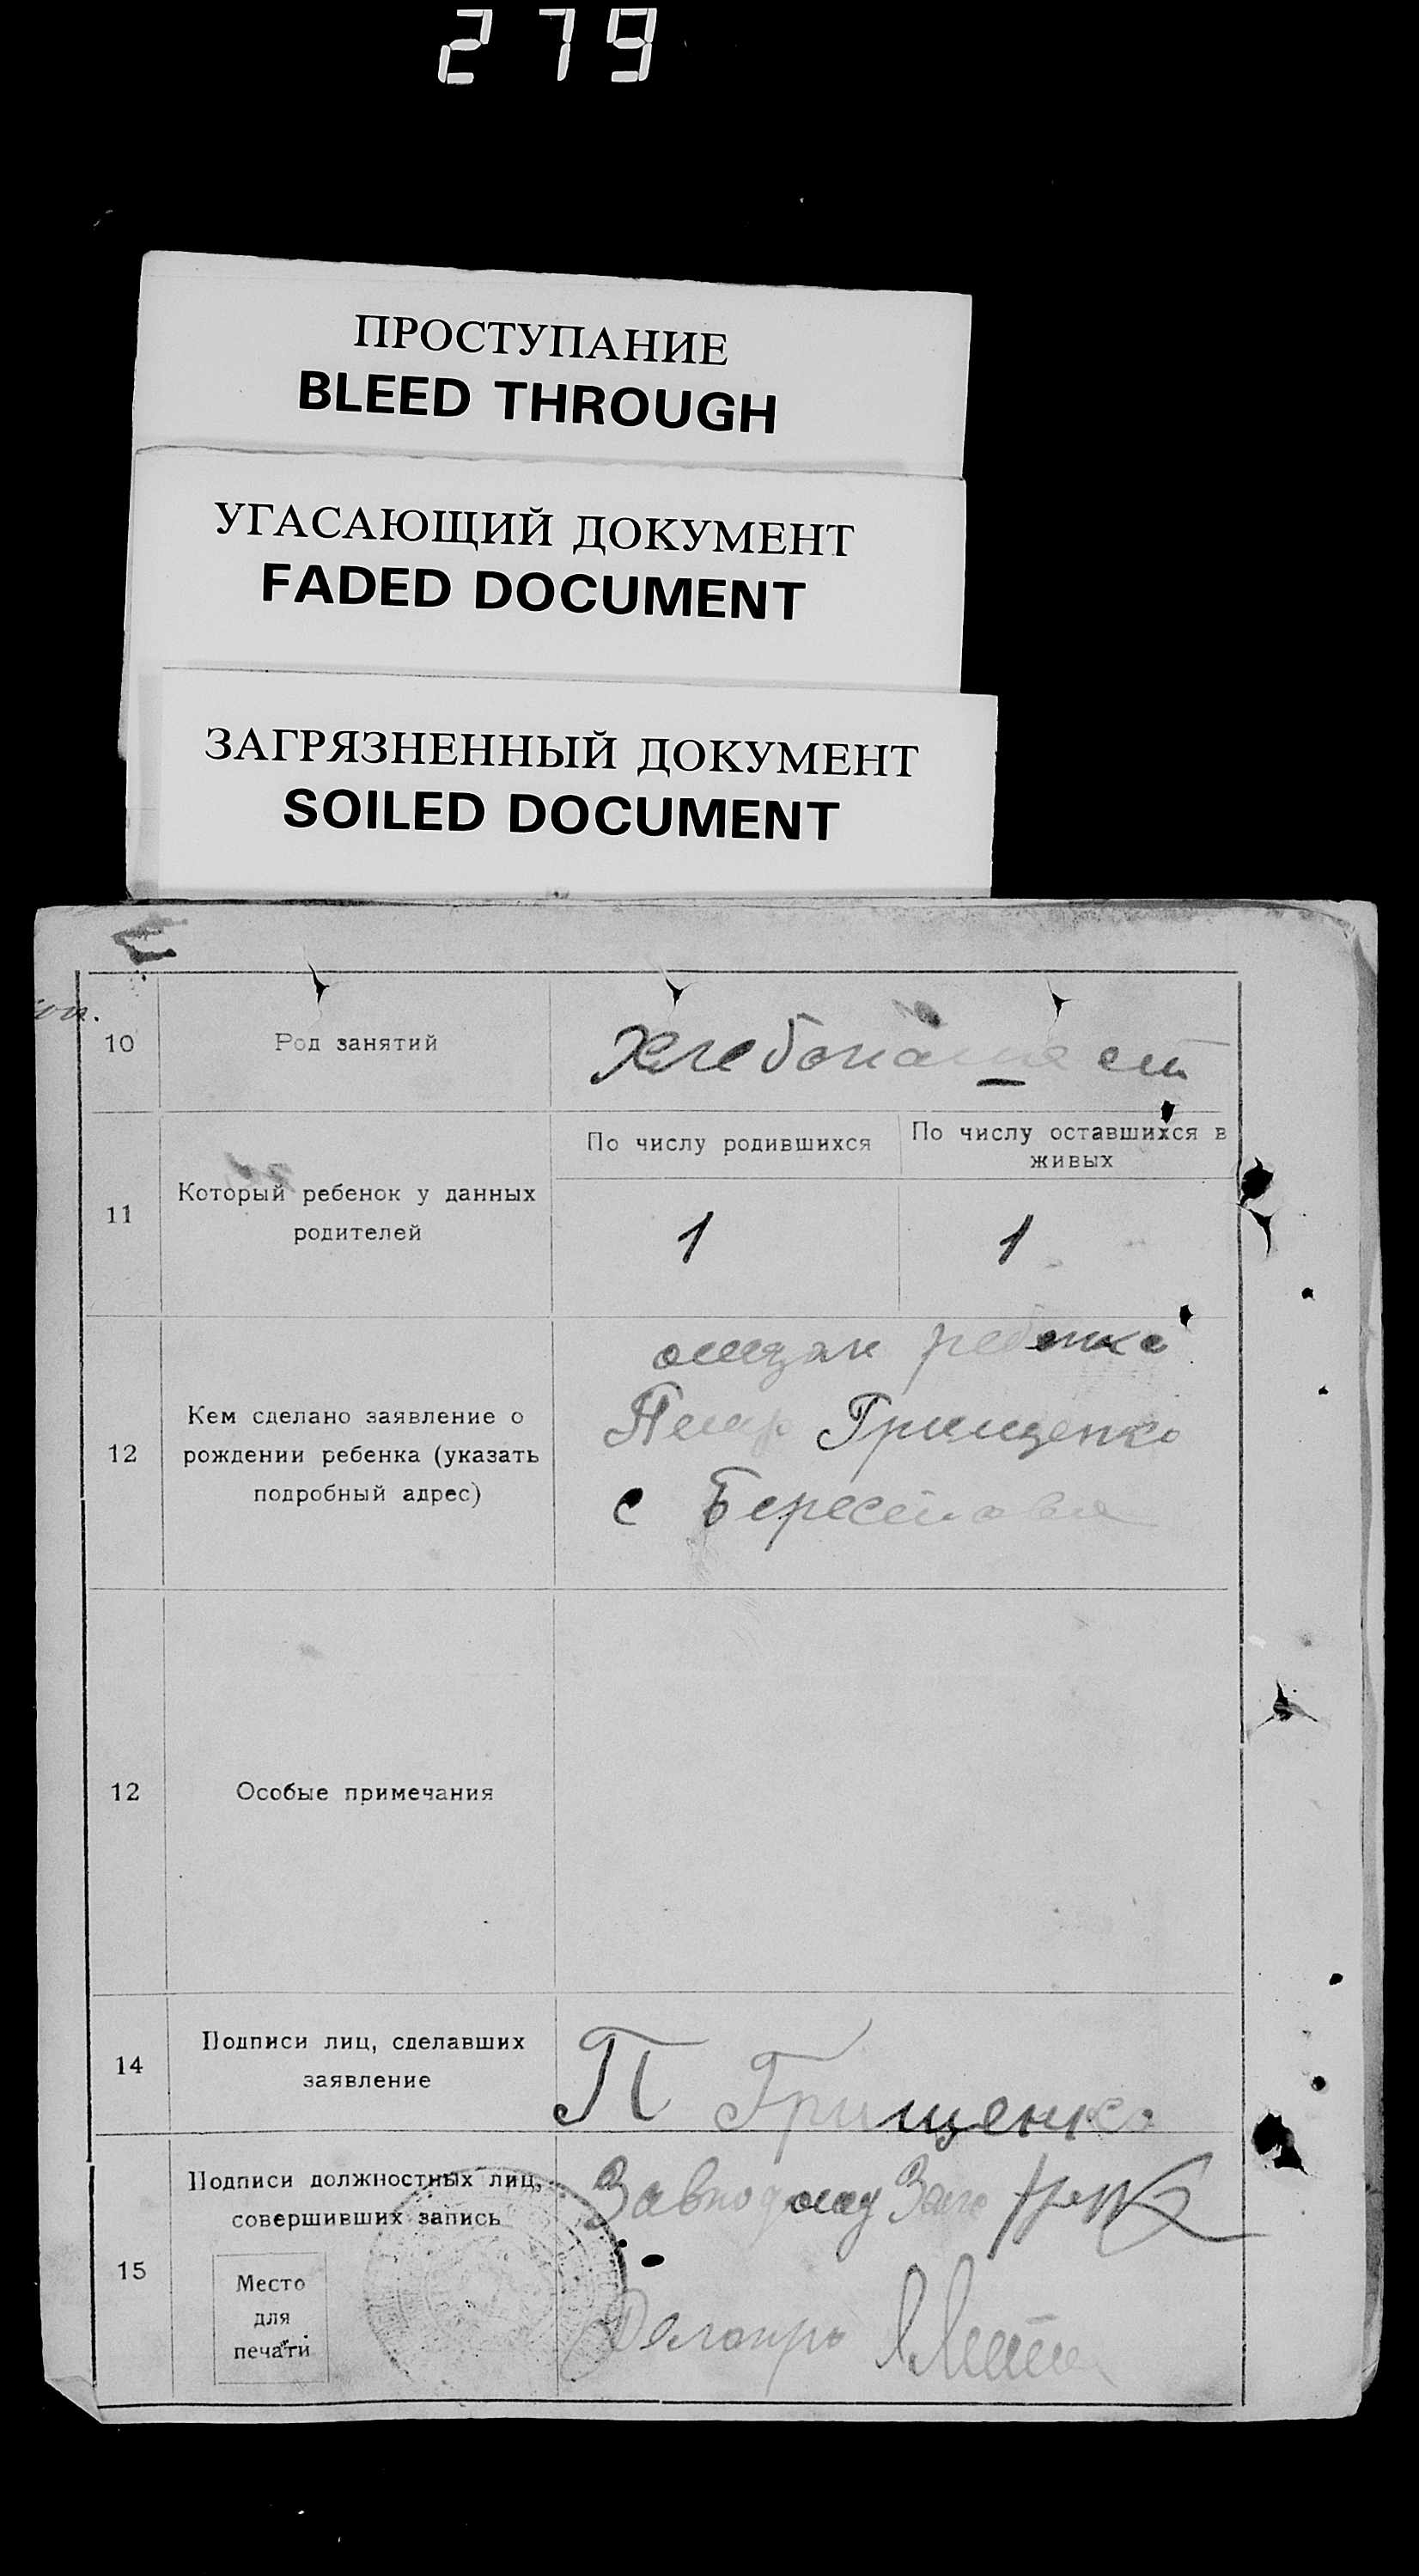 279
ПРОСТУПАНИЕ
BLEED THROUGH
УГАСАЮЩИЙ ДОКУМЕНТ
FADED DOCUMENT
ЗАГРЯЗНЕННЫЙ ДОКУМЕНТ
SOILED DOCUMENT
10 Род занятий
11 Который ребенок у данных
родителей
По числу родившихся
По числу оставшихся в
живых
1 1
12 Кем сделано заявление о
рождении ребенка (указать
подробный адрес)
ребенка
Петр Грищенко
с
12 Особые примечания
14 Подписи лиц, сделавших
заявление
П Грищенко
15 Подписи должностных лиц,
совершивших запись
Место
для
печати